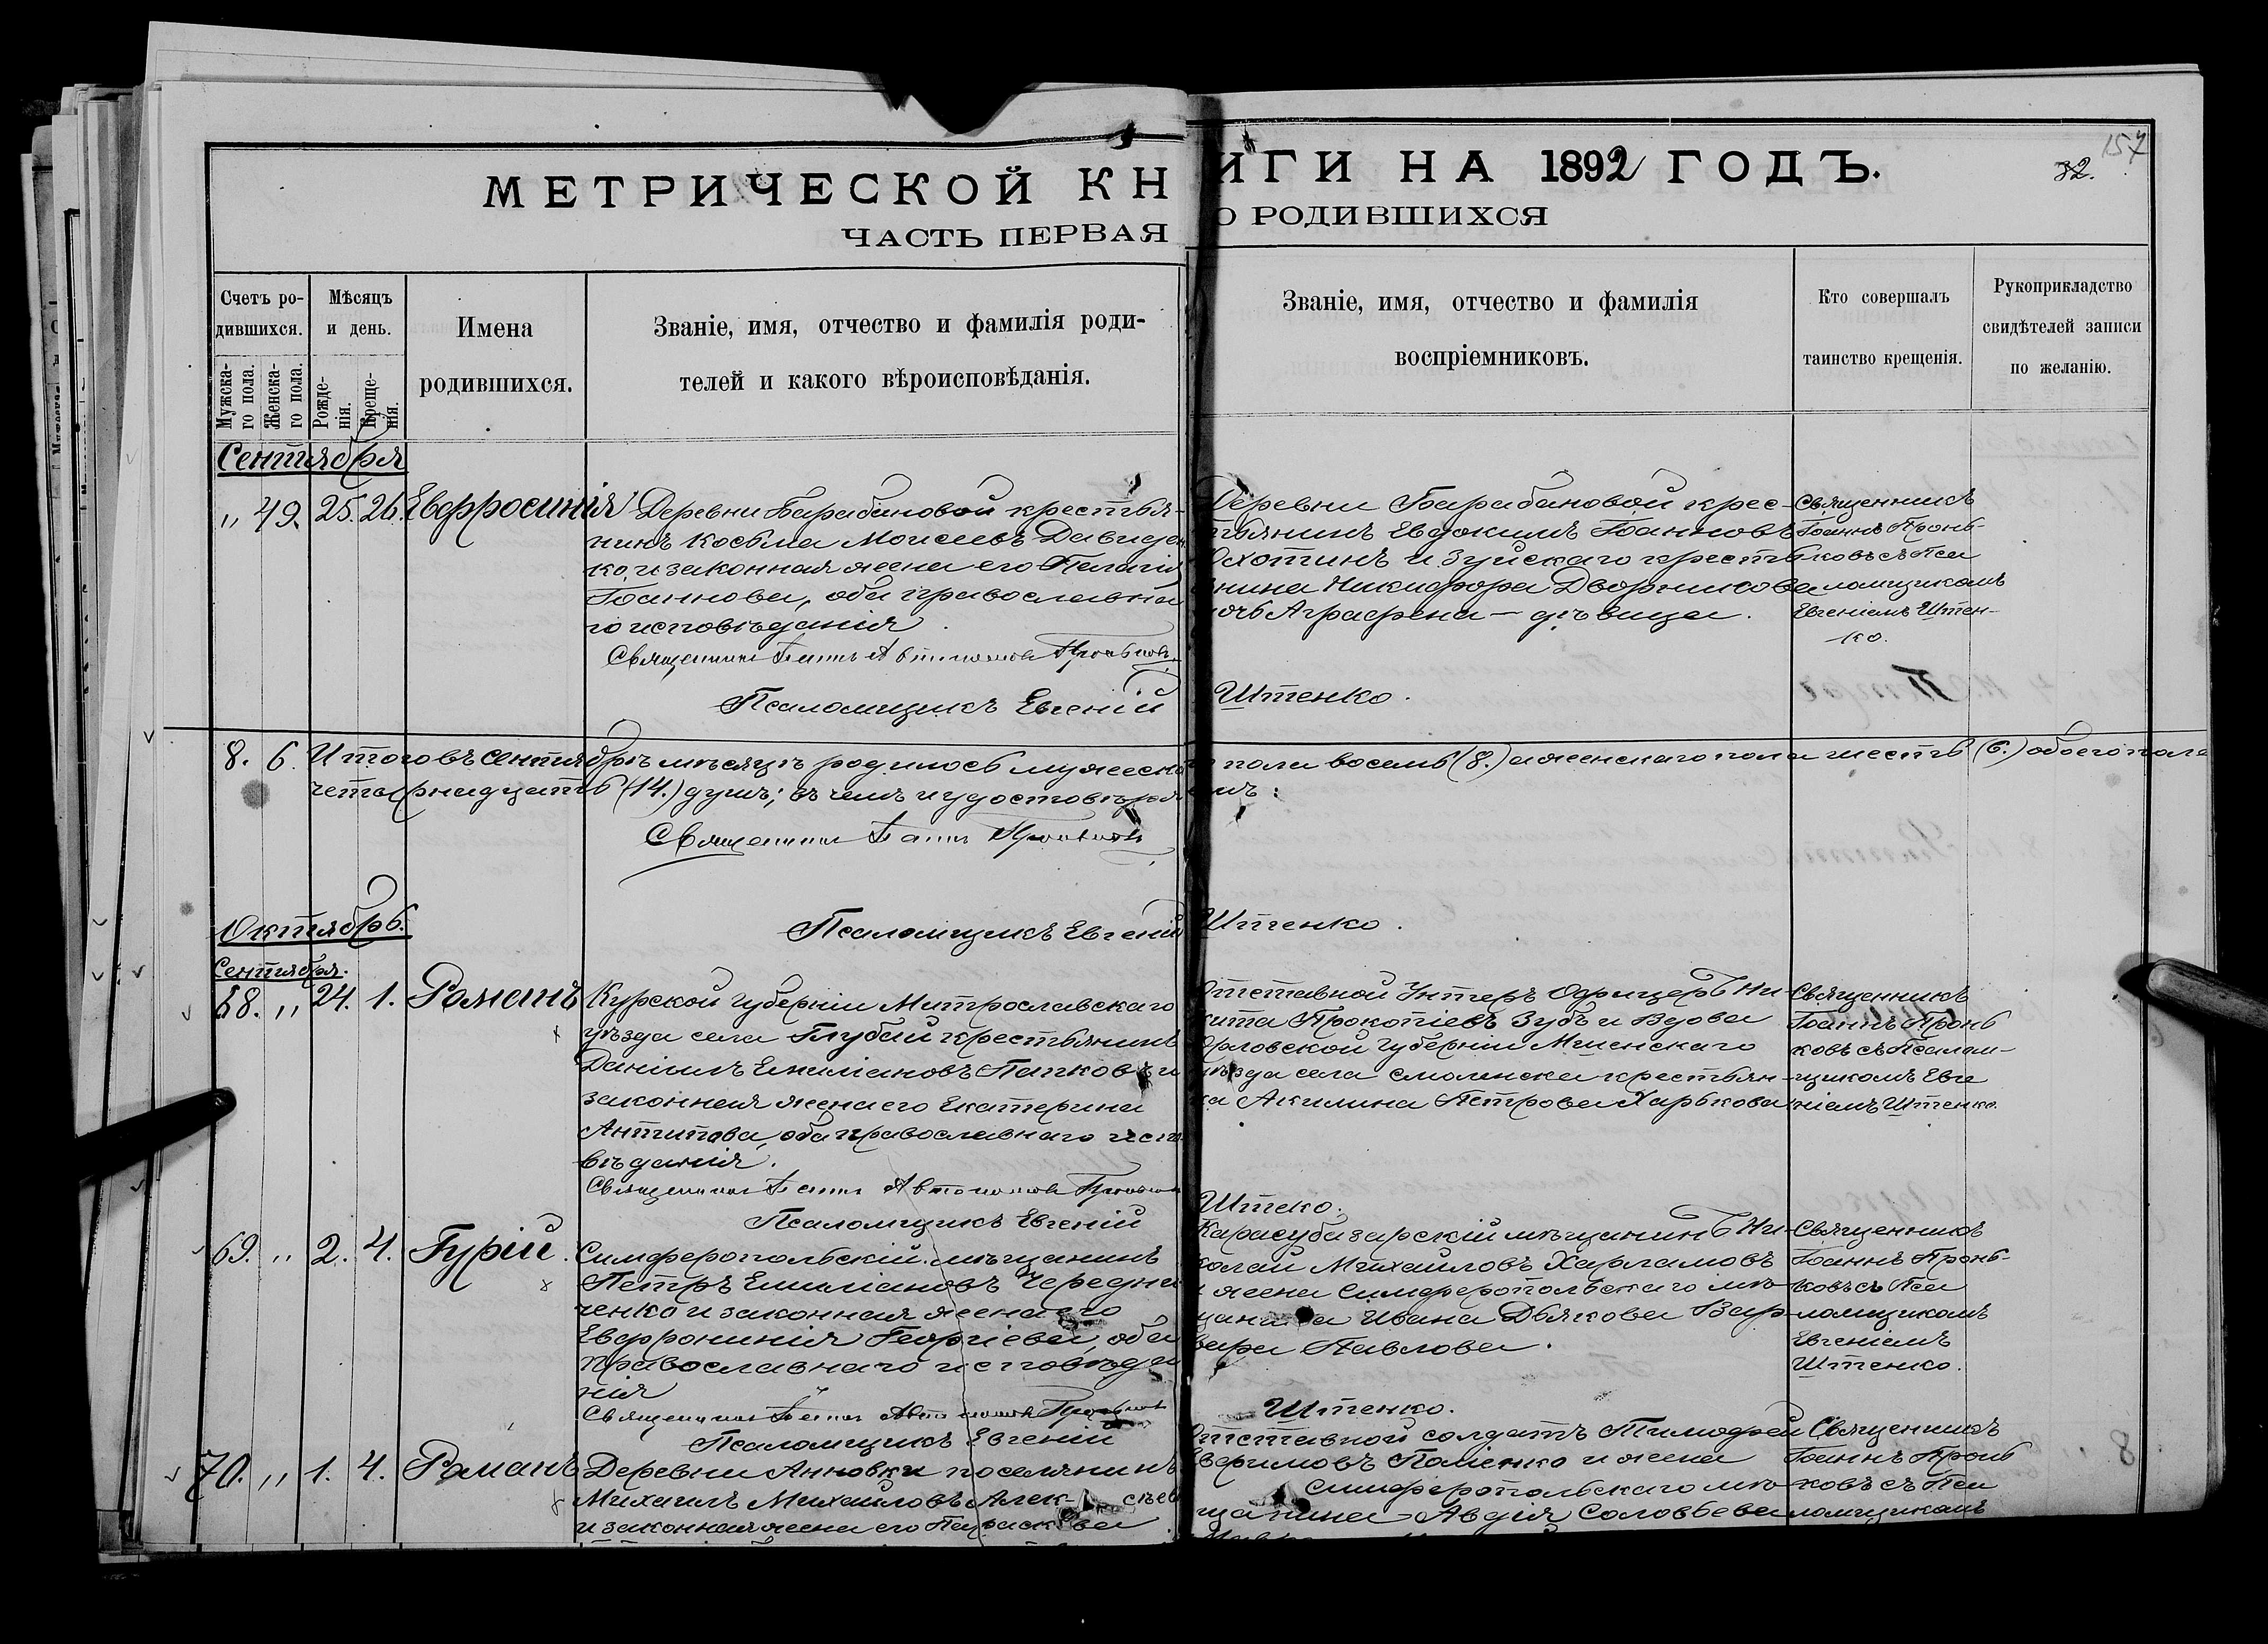 МЕТРИЧЕСКОЙ КНИГИ НА 1892 ГОДЪ.
32.
157
ЧАСТЬ ПЕРВАЯ О РОДИВШИХСЯ
Счетъ ро-
дившихся.
Мужска-
го пола.
Женска-
го пола.
Мѣсяцъ
и день.
Рожде-
нія.
Креще-
нія.
Имена
родившихся.
Званіе, имя, отчество и фамилія роди-
телей и какого вѣроисповѣданія.
Званіе, имя, отчество и фамилія
воспріемниковъ.
Кто совершалъ
таинство крещенія.
Рукоприкладство
свидѣтелей записи
по желанію.
Сентября
„ 49. 25. 26. Евфросинія
Деревни Барабановой крестья-
нинъ Косьма Моисеевъ Давиден
ко, и законная жена его Пелагія
Іоаннова, оба православна
го исповѣданія.
Священникъ Іоаннъ Автономовъ Проньковъ
Псаломщикъ Евгеній Штенко.
Деревни Барабановой крес-
тьянинъ Евдокимъ Іоанновъ
Охотинъ и Зуйскаго кресть
янина Никифора Дворникова
дочь Аграфена - дѣвица.
Священникъ
Іоаннъ Пронь-
ковъ съ Пса
ломщикомъ
Евгеніемъ Штен-
ко.
8. 6. Итого въ Сентябрѣ мѣсяцѣ родилось мужеска пола восемь (8.) а женскаго пола шесть (6.) обоего пола
четырнадцать (14.) душъ; въ чемъ и удостовѣряемъ:
Священникъ Іоаннъ Проньковъ
Псаломщикъ Евгеній Штенко.
Октябрь.
Сентября.
68. „ 24. 1. Романъ
Курской губерніи Митрославскаго
уѣзда села Глубкй крестьянинъ
Даніилъ Емиліановъ Папковъ и
законная жена его Екатерина
Антипова, оба православнаго испо
вѣданія.
Священникъ Іоаннъ Автономовъ Проньковъ
Псаломщикъ Евгеній Штеко.
Отставной Унтеръ Офицеръ Ни-
кита Прокопіевъ Зубъ и Вдова
Орловской губерніи Мценскаго
уѣзда села Смоленска крестьян-
ка Акилина Петрова Харькова
Священникъ
Іоаннъ Пронь
ковъ съ Псалом-
щикомъ Евге
ніемъ Штенко.
69. „ 2. 4. Гурій.
Симферопольскій мѣщанинъ
Петръ Емиліановъ Чередни
ченко и законная жена его
Евфронинія Георгіева, оба
православнаго исповѣда
нія
Священникъ Іоаннъ Автономовъ Проньковъ
Псаломщикъ Евгеній Штенко.
Карасубазарскій мѣщанинъ Ни-
колай Михайловъ Харламовъ
и жена Симферопольскаго мѣ-
щанина Ивана Дьякова Вар-
вара Павлова.
Священникъ
Іоаннъ Пронь-
ковъ съ Пса
ломщикомъ
Евгеніемъ
Штенко.
70. „ 1. 4. Романъ
Деревни Анновки поселянинъ
Михаилъ Михайловъ Алексѣев
и законная жена его Параскева
Отставной солдатъ Тимофей
и жена
Симферопольскаго мѣ-
щанина Авдія Соловьева
Священникъ
Іоаннъ Пронь
ковъ съ Пса
ломщикомъ